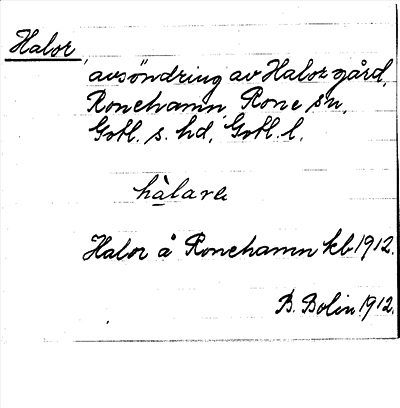 Halor,
avsöndring av Halor gård,
Ronehamn Rone sn,
Gotl. s. hd, Gotl. l.
hàlare
Halor å Ronehamn kb 1912.
B. Bolin 1912.